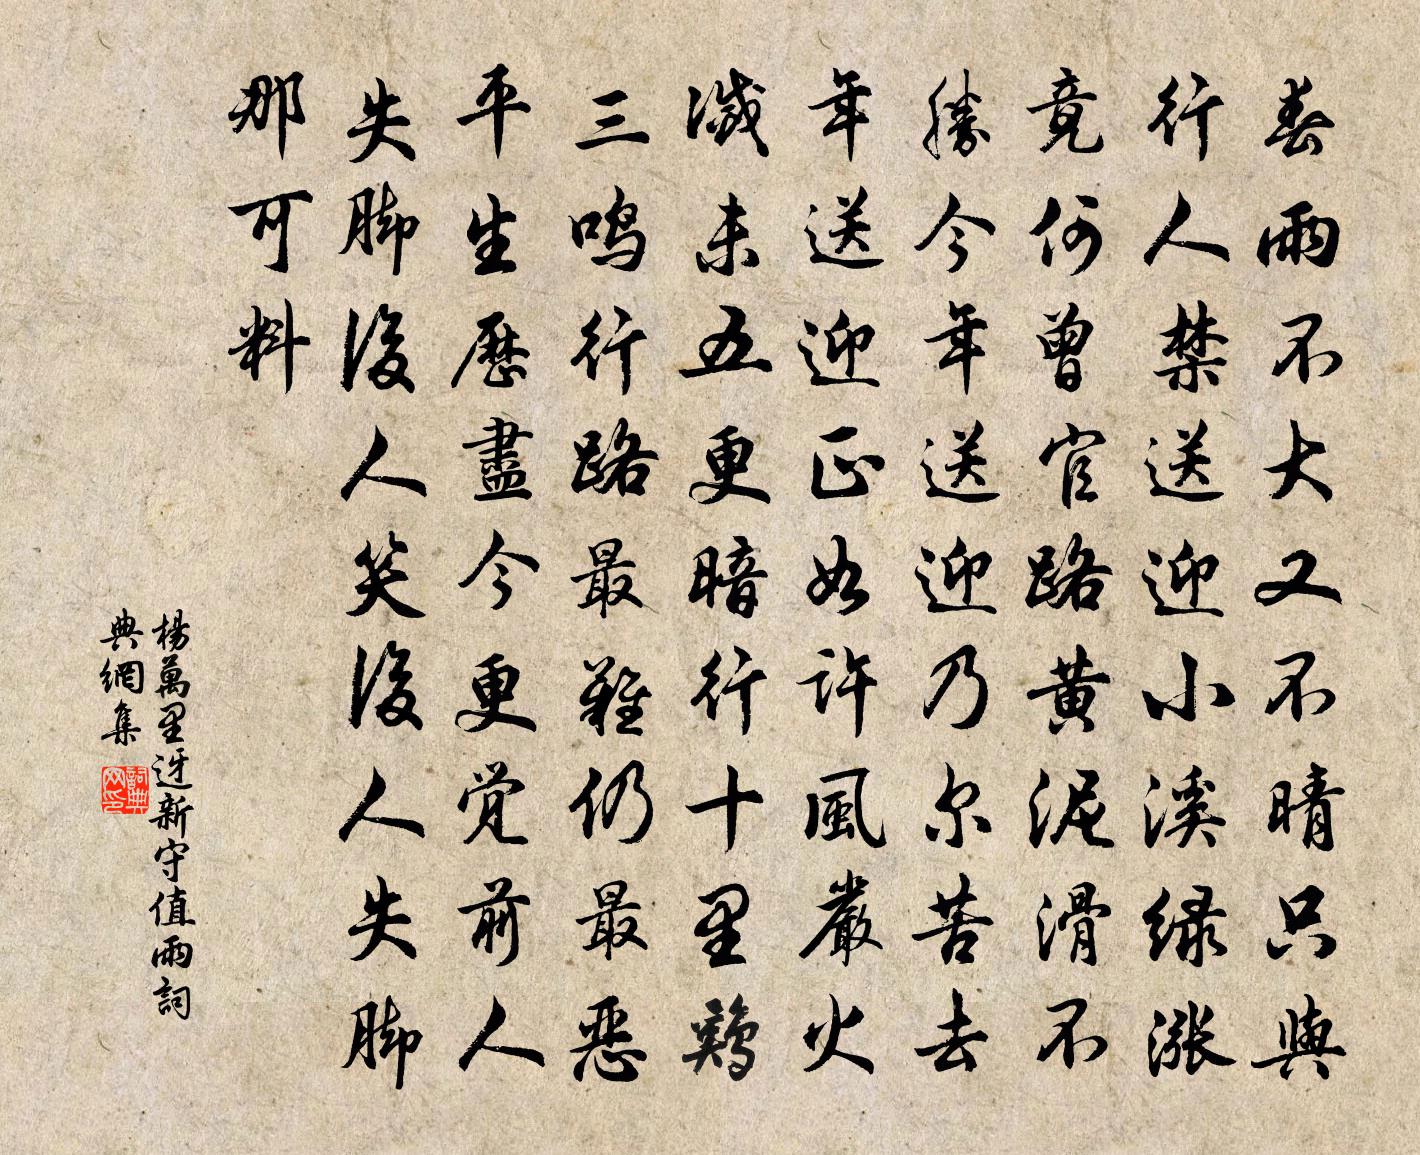 春雨不大又不晴只與
行人禁送迎小溪緑漲
竟何曾官路黄泥滑不
勝今年送迎乃尔苦去
年送迎正如許風嚴火
滅未五更暗行十里鷄
三鳴行路最難仍最惡
平生歷盡今更覺前人
失脚後人笑後人失脚
那可料
楊萬里迓新守值雨詞
典網集
詞典
网印